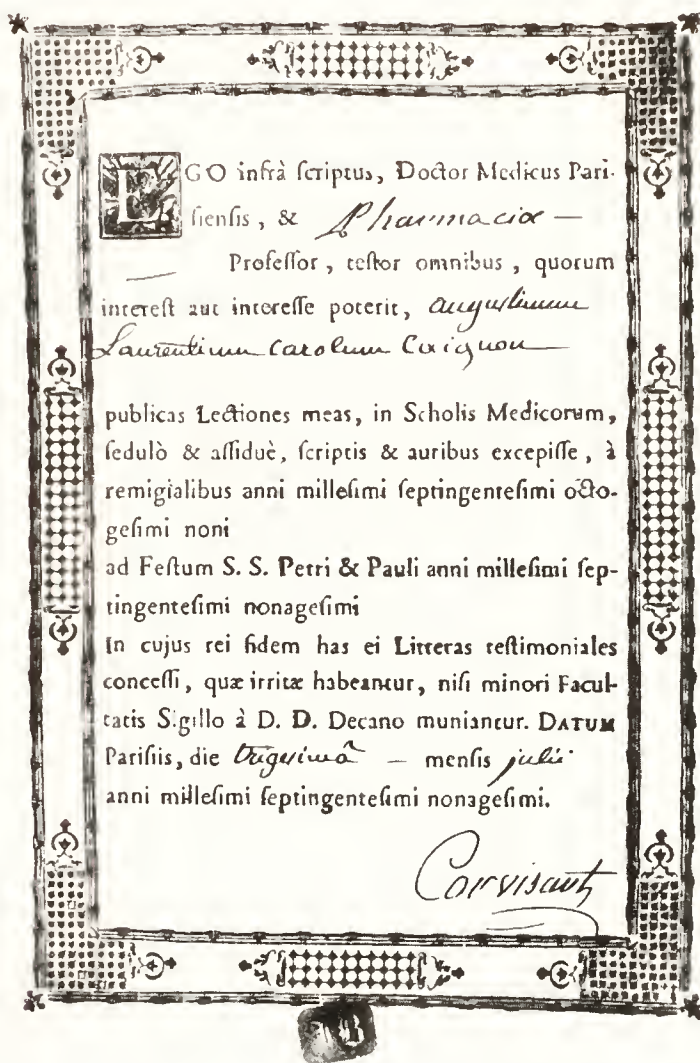 EGO infrà ſcriptus, Doctor Medicus Pari-
ſienſis, & Pharmaciæ —
Profeſſor, teſtor omnibus, quorum
intereſt aut intereſſe poterit, augustinum
Laurentium Carolum
publicas Lectiones meas, in Scholis Medicorum,
ſedulò & aſſiduè, ſcriptis & auribus excepiſſe, à
remigialibus anni milleſimi ſeptingenteſimi octo-
geſimi noni
ad Feſtum S. S. Petri & Pauli anni milleſimi ſep-
tingenteſimi nonageſimi
In cujus rei fidem has ei Litteras teſtimoniales
conceſſi, quæ irritæ habeantur, niſi minori Facul-
tatis Sigillo à D. D. Decano muniantur. DATUM
Pariſiis, die trigesimâ — menſis julii
anni milleſimi ſeptingenteſimi nonageſimi.
Corvisart